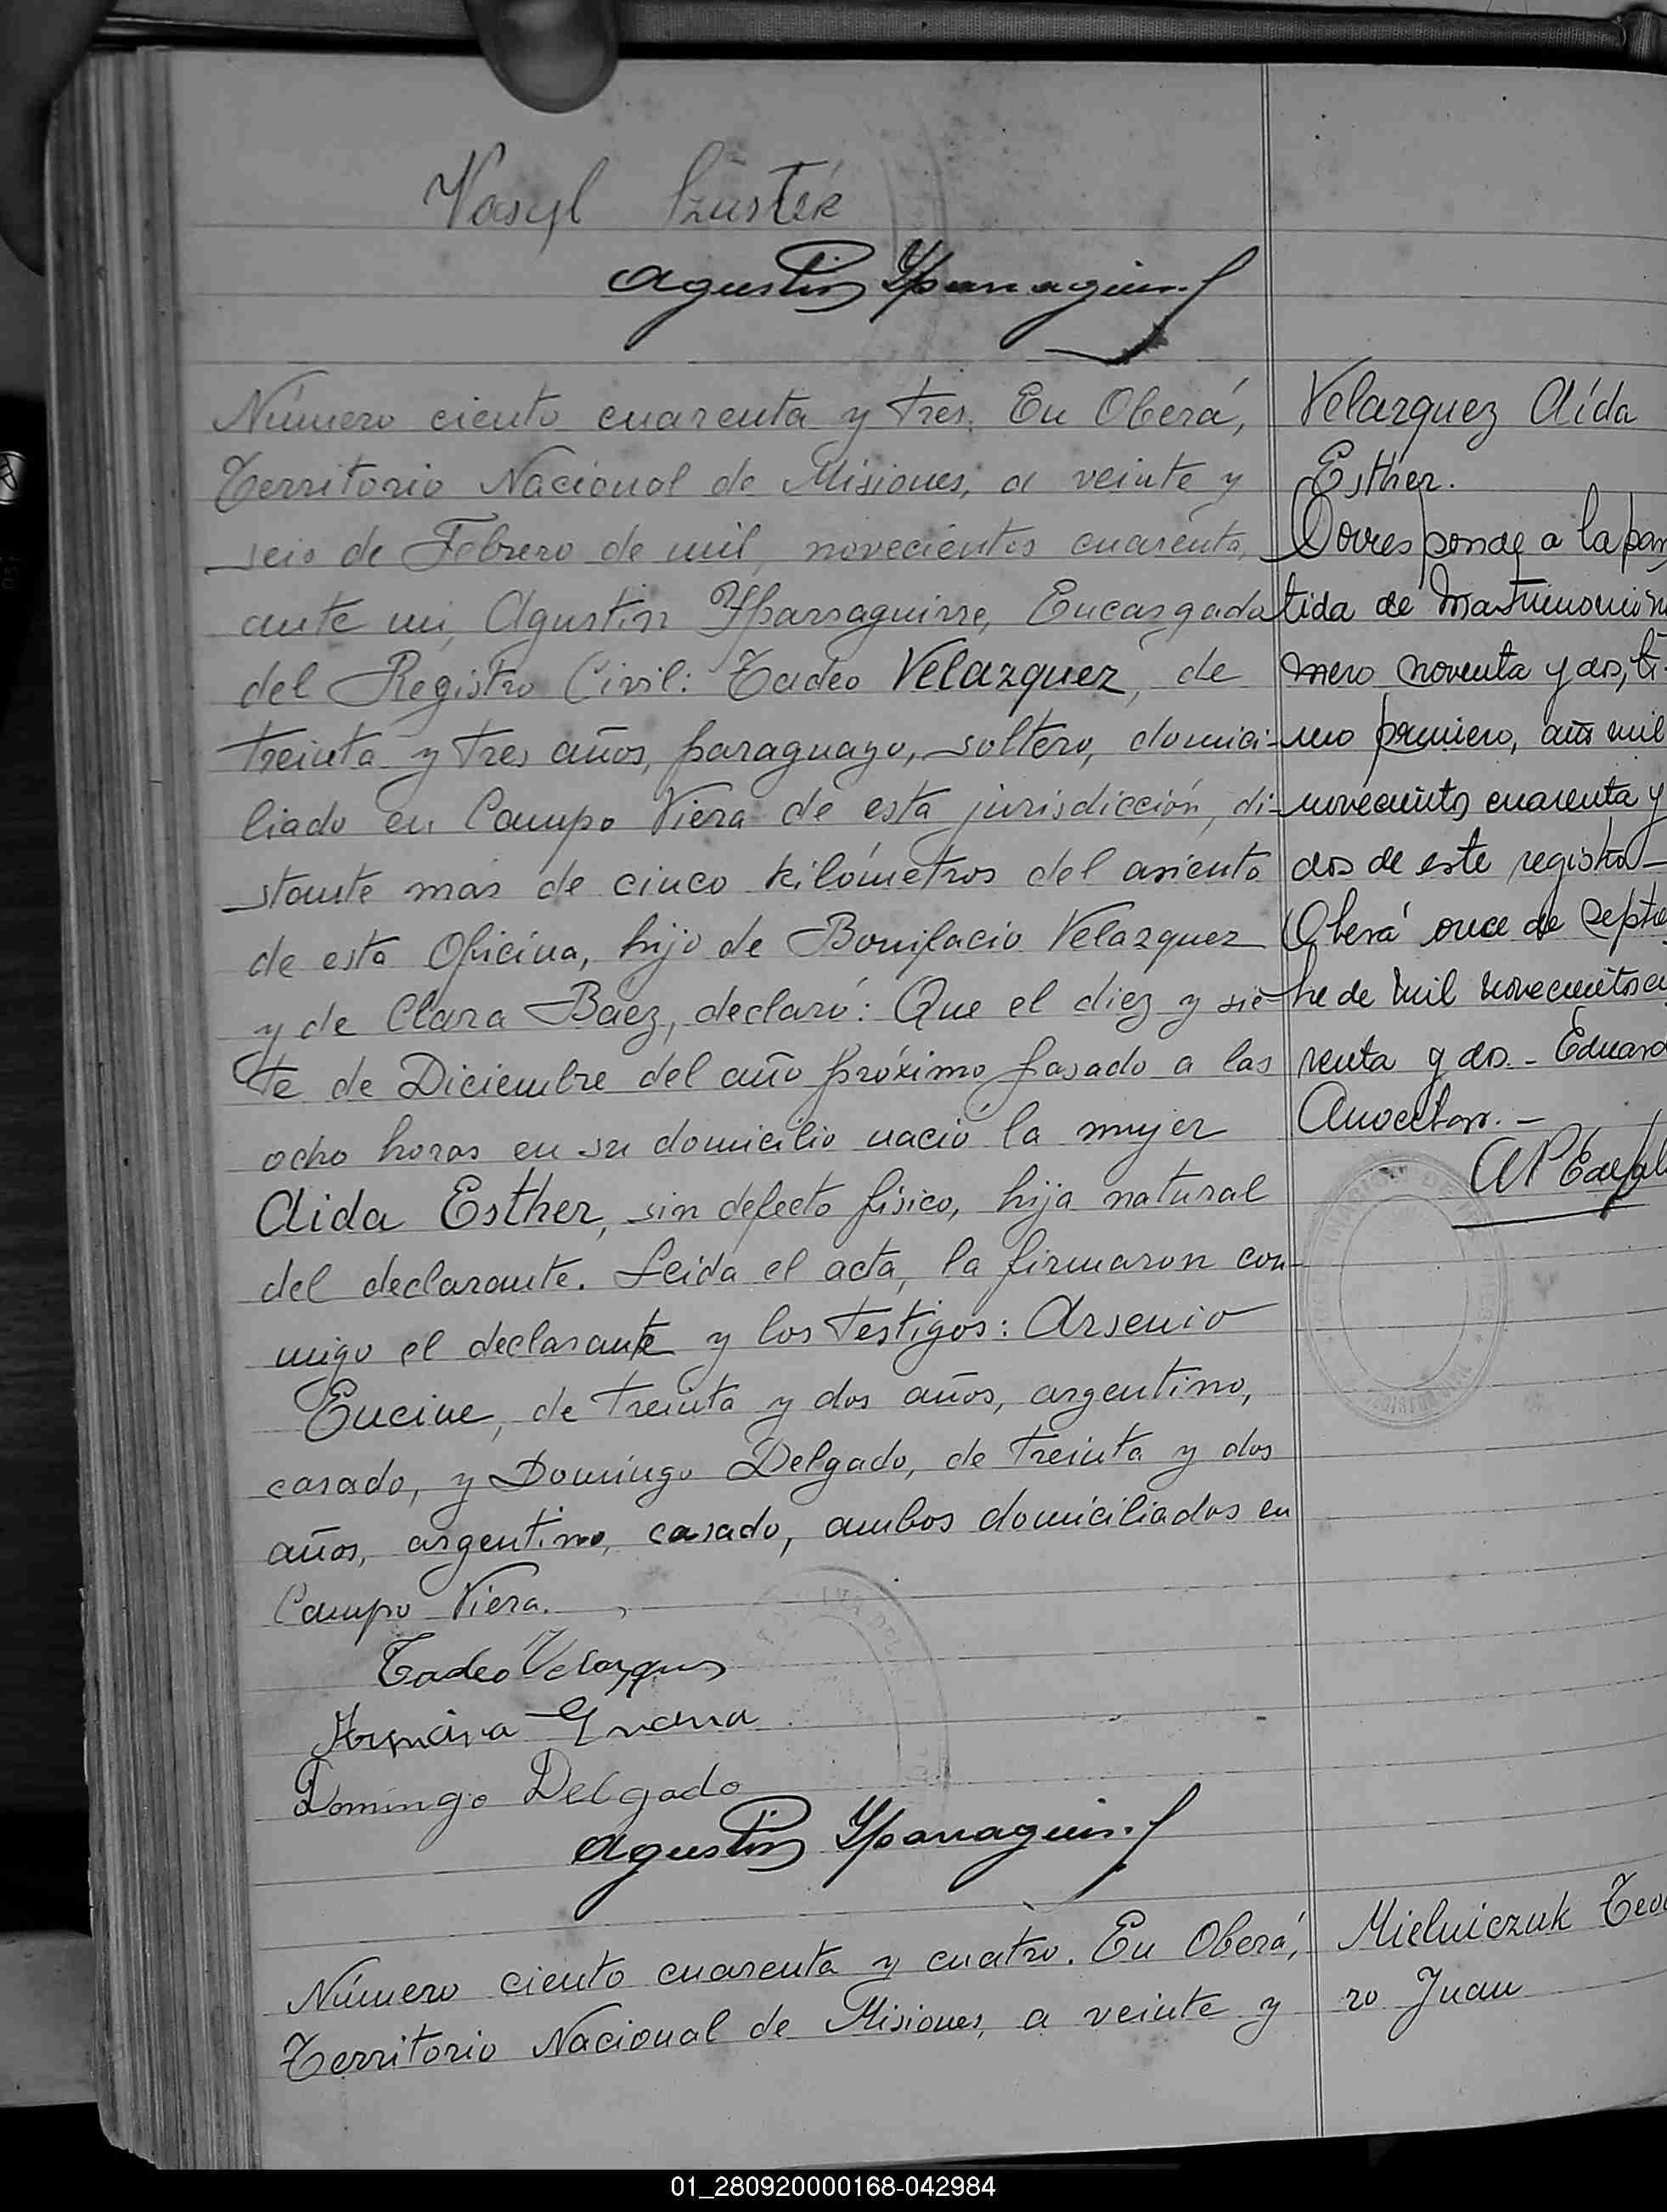 Vasyl Szustek
Agustin Yparraguirre
Número ciento cuarenta y tres. En Oberá,
Territorio Nacional de Misiones, a veinte y
seis de Febrero de mil novecientos cuarenta,
ante mi, Agustin Yparraguirre, Encargado
del Registro Civil: Tadeo Velazquez, de
treinta y tres años, paraguayo, soltero, domici-
liado en Campo Viera de esta jurisdicción, di-
stante mas de cinco kilómetros del asiento
de esta Oficina, hijo de Bonifacio Velazquez
y de Clara Báez, declaró: Que el diez y sie-
te de Diciembre del año próximo pasado a las
ocho horas en su domicilio nació la mujer
Aida Esther, sin defecto físico, hija natural
del declarante. Leida el acta, la firmaron con-
migo el declarante y los testigos: Arsenio
Encine, de treinta y dos años, argentino,
casado, y Domingo Delgado, de treinta y dos
años, argentino, casado, ambos domiciliados en
Campo Viera.
Tadeo Velazques
Domingo Delgado
Agustin Yparraguirre
Número ciento cuarenta y cuatro. En Oberá,
Territorio Nacional de Misiones, a veinte y
Velazquez Aída
Esther.
Corresponde a la par
tida de matrimonio nu
mero noventa y dos, to-
mo primero, año mil
novecientos cuarenta y
dos de este registro-
Oberá once de Septie
bre de mil novecientos cua
renta y dos.- Eduard
Mielniczuk Teo
ro Juan
01_280920000168-042984